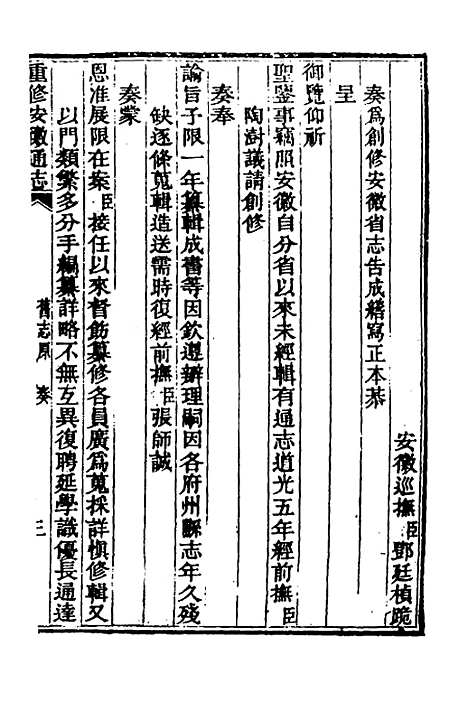 安徽巡撫臣鄧廷楨跪
奏爲創修安徽省志告成繕寫正本恭
呈
御覽仰祈
聖鑒事竊照安徽自分省以來未經輯有通志道光五年經前撫臣
陶澍議請創修
奏奉
諭旨予限一年纂輯成書等因欽遵辦理嗣因各府州縣志年久殘
缺逐條蒐輯造送需時復經前撫臣張師誠
奏蒙
恩准展限在案臣接任以來督飭纂修各員廣爲蒐採詳愼修輯又
以門類繁多分手編纂詳略不無互異復聘延學識優長通達
重修安徽通志
舊志原奏
三